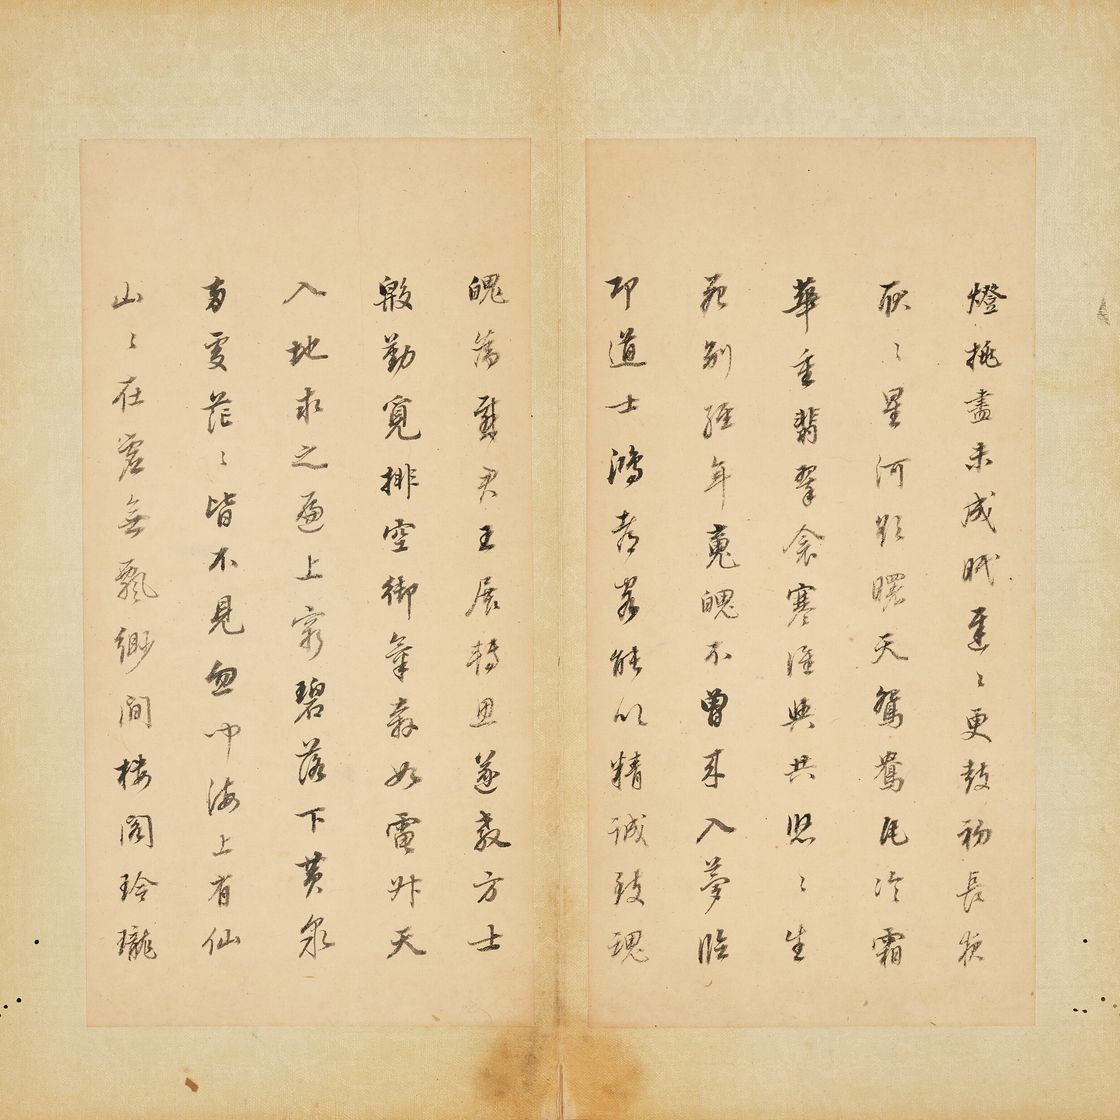 燈挑盡未成眠遲〻更鼓初長夜
耿〻星河欲曙天鴛鴦瓦冷霜
華重翡翠衾寒誰與共悠〻生
死別經年魂魄不曾來入夢臨
邛道士鴻都客能以精誠致魂
魄為感君王展轉思遂教方士
殷勤覓排空御氣奔如電升天
入地求之遍上窮碧落下黃泉
兩處茫〻皆不見忽聞海上有仙
山〻在虛無飄緲間樓閣玲瓏